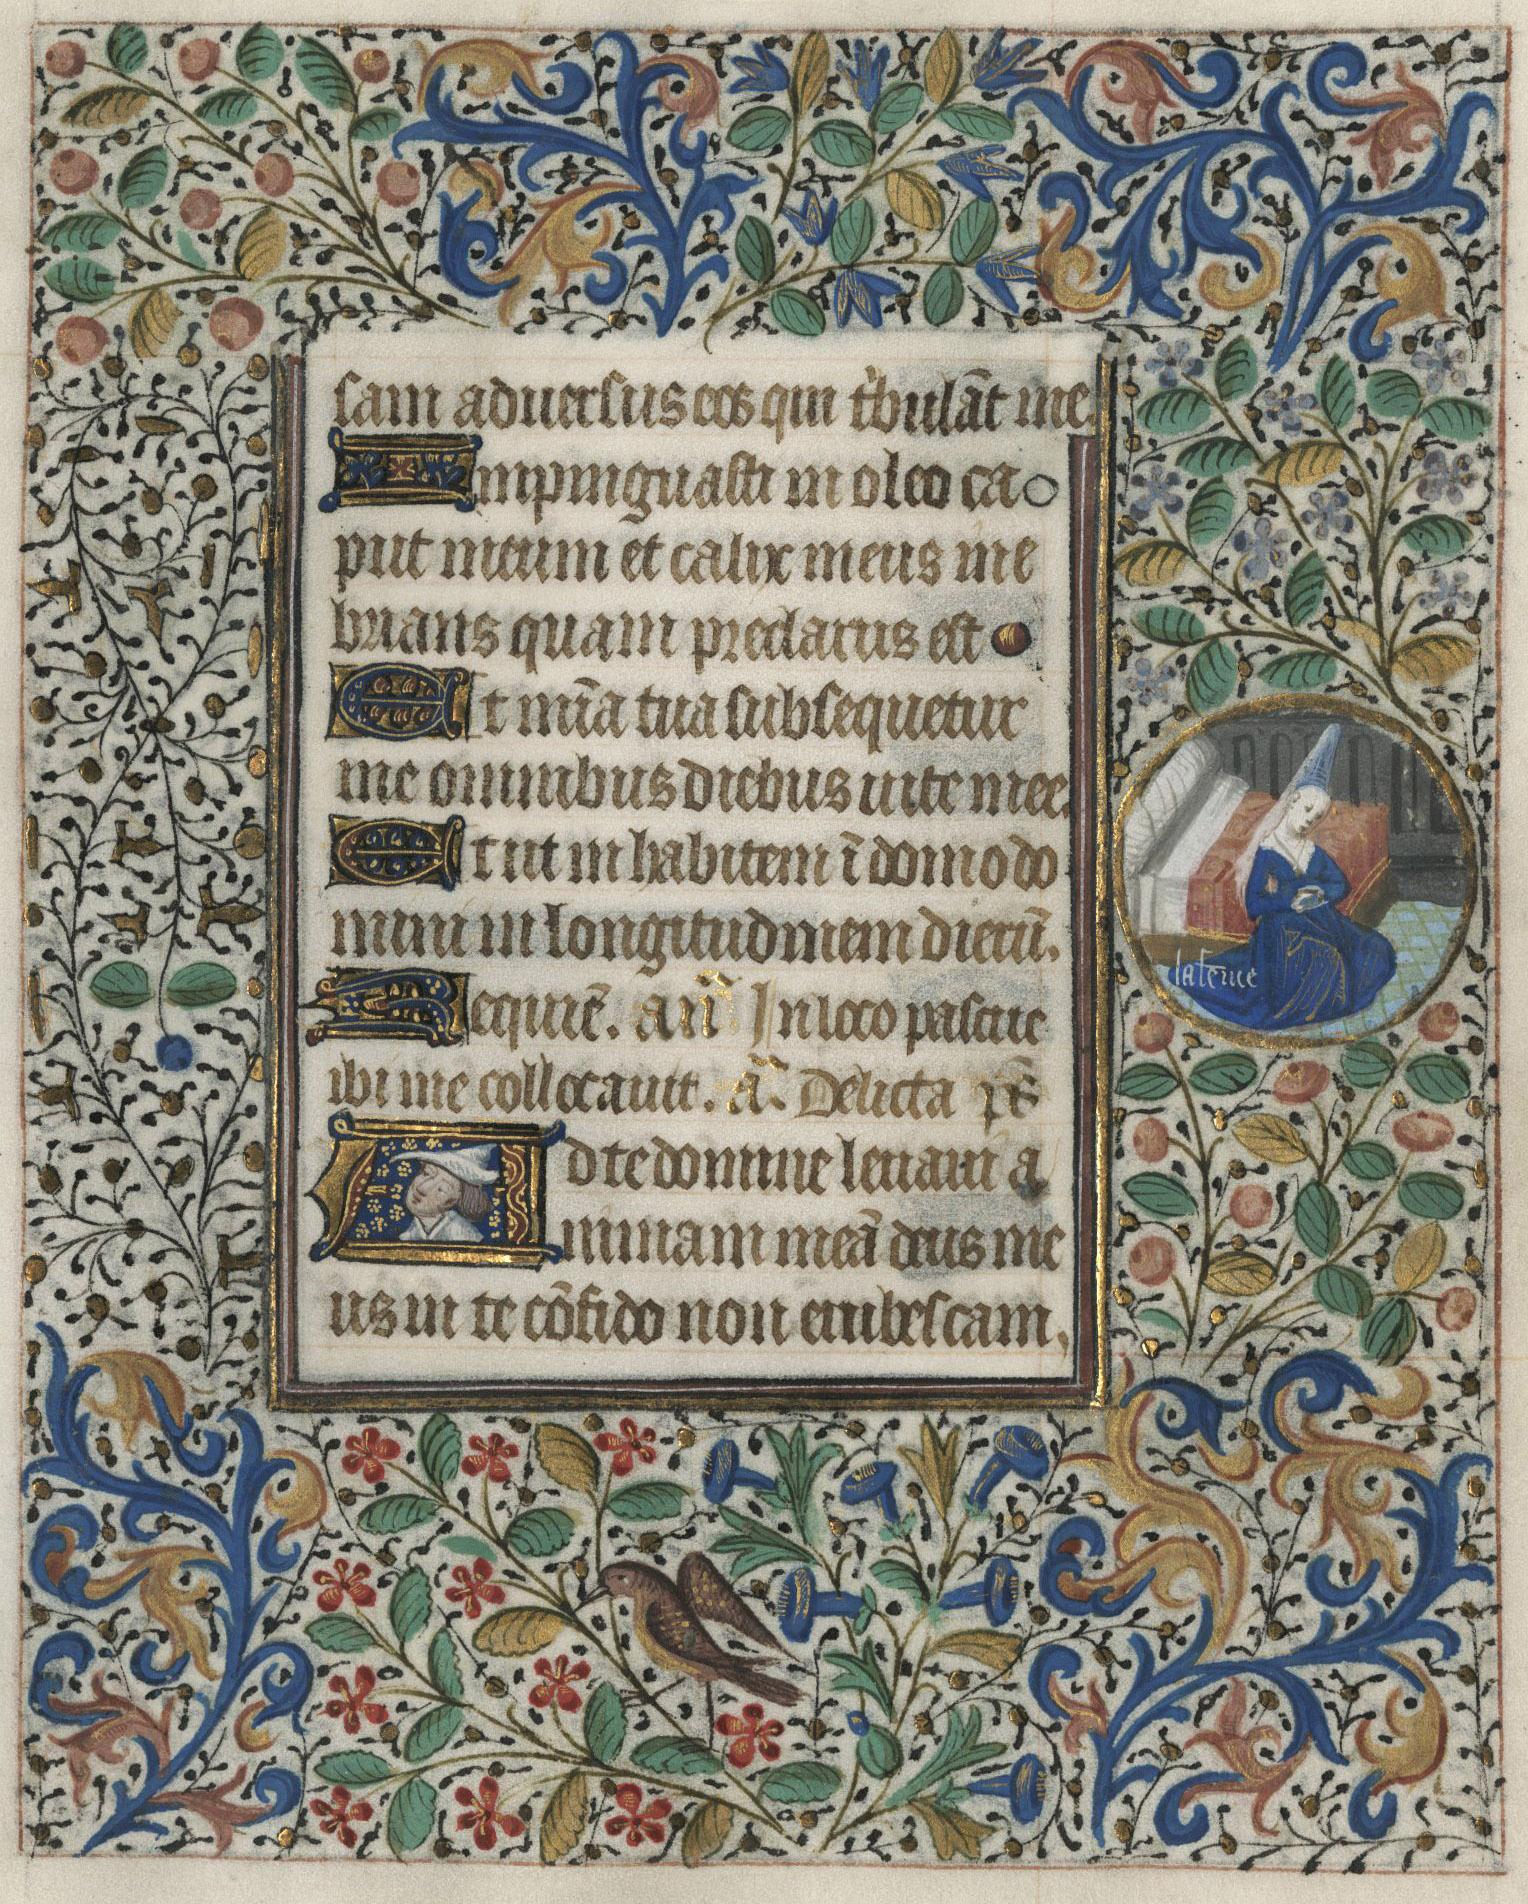 sam aduersus eos qui t'bulāt me.
Inpinguasti in oleo ca
put meum et calix meus ine
brians quam preclarus est
Et mīa tua subsequetur
me omnibus diebus uite mee.
Et ut inhabitem ī domo do
mini in longitudinem dierū.
Requiē. añ In loco pascue
ibi me collocauit. a. Delicta ps
Ad te domine leuaui a
nimam meā deus me
us in te cōfido non erubescam,